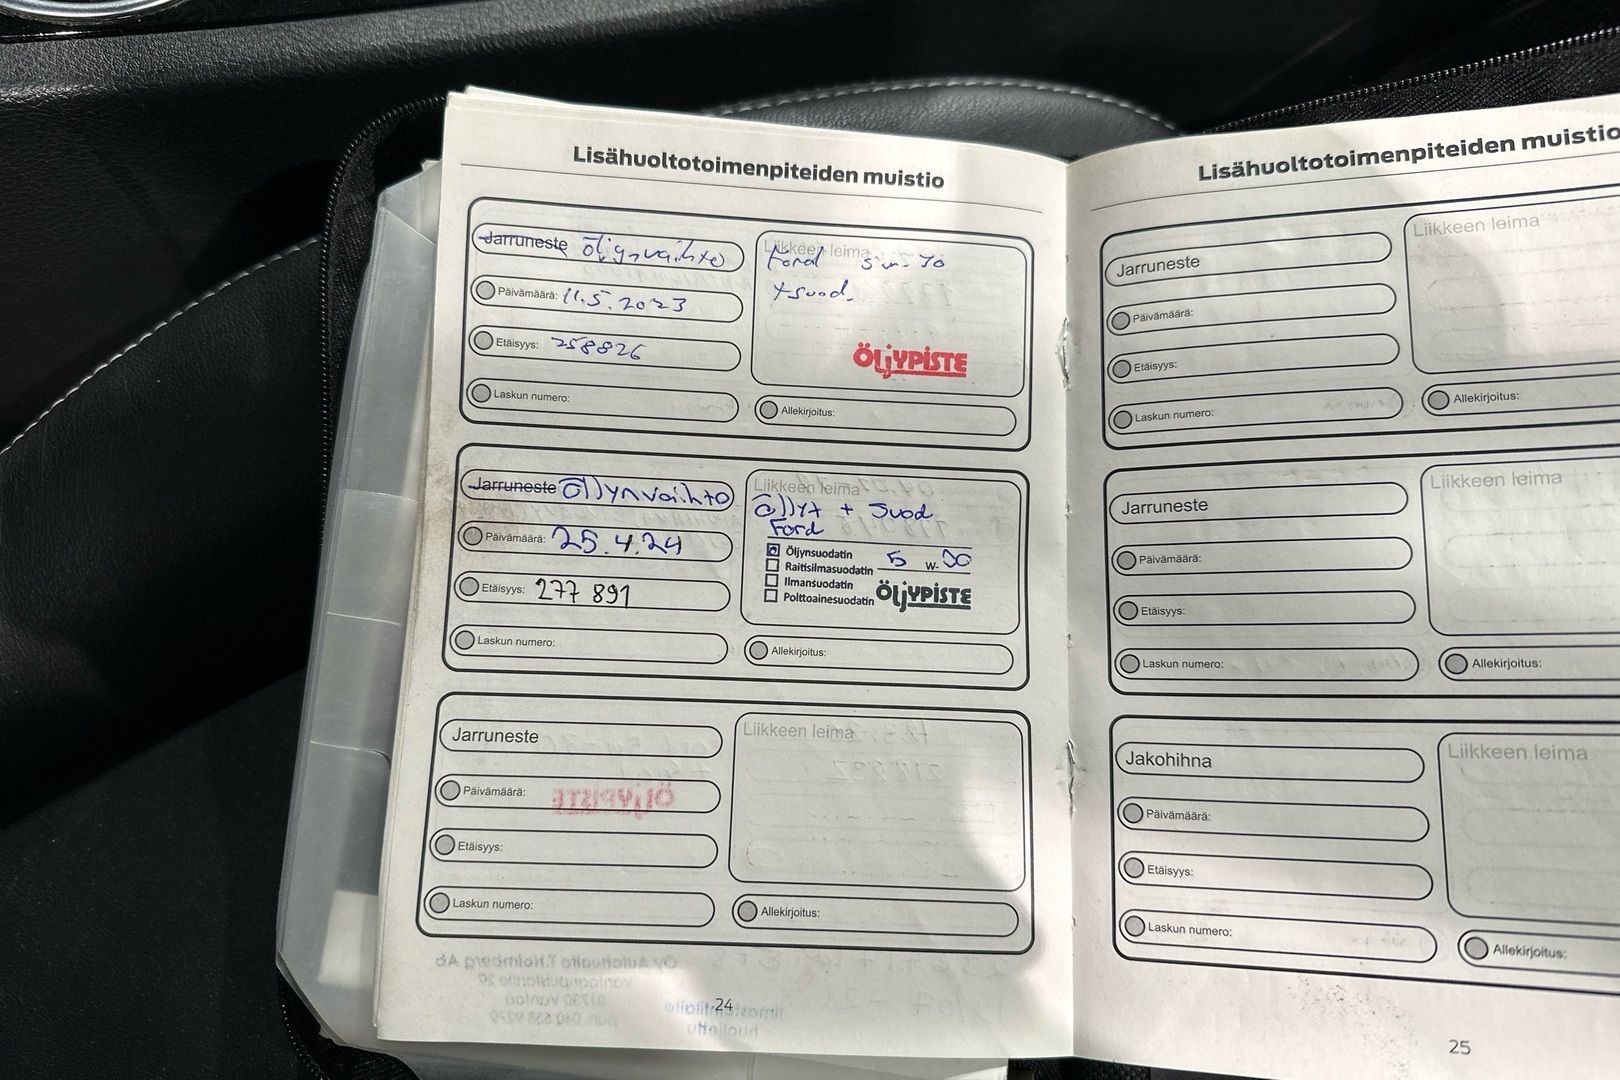 Lisähuoltotoimenpiteiden muistio
Jarruneste öljynvaihto
Päivämäärä: 11.5.2023
Etäisyys: 258826
Laskun numero:
Liikkeen leima
Ford 5w-30
+ suod.
ÖLJYPISTE
Allekirjoitus:
Jarruneste Öljynvaihto
Päivämäärä: 25.4.24
Etäisyys: 277 891
Laskun numero:
Liikkeen leima
Öljyt + Suod
Ford
Öljynsuodatin 5 W-30
Raitisilmasuodatin
Ilmansuodatin
Polttoainesuodatin
ÖLJYPISTE
Allekirjoitus:
Jarruneste
Päivämäärä:
Etäisyys:
Laskun numero:
Liikkeen leima
Allekirjoitus:
24
Lisähuoltotoimenpiteiden muistio
Jarruneste
Päivämäärä:
Etäisyys:
Laskun numero:
Liikkeen leima
Allekirjoitus:
Jarruneste
Päivämäärä:
Etäisyys:
Laskun numero:
Liikkeen leima
Allekirjoitus:
Jakohihna
Päivämäärä:
Etäisyys:
Laskun numero:
Liikkeen leima
Allekirjoitus:
25